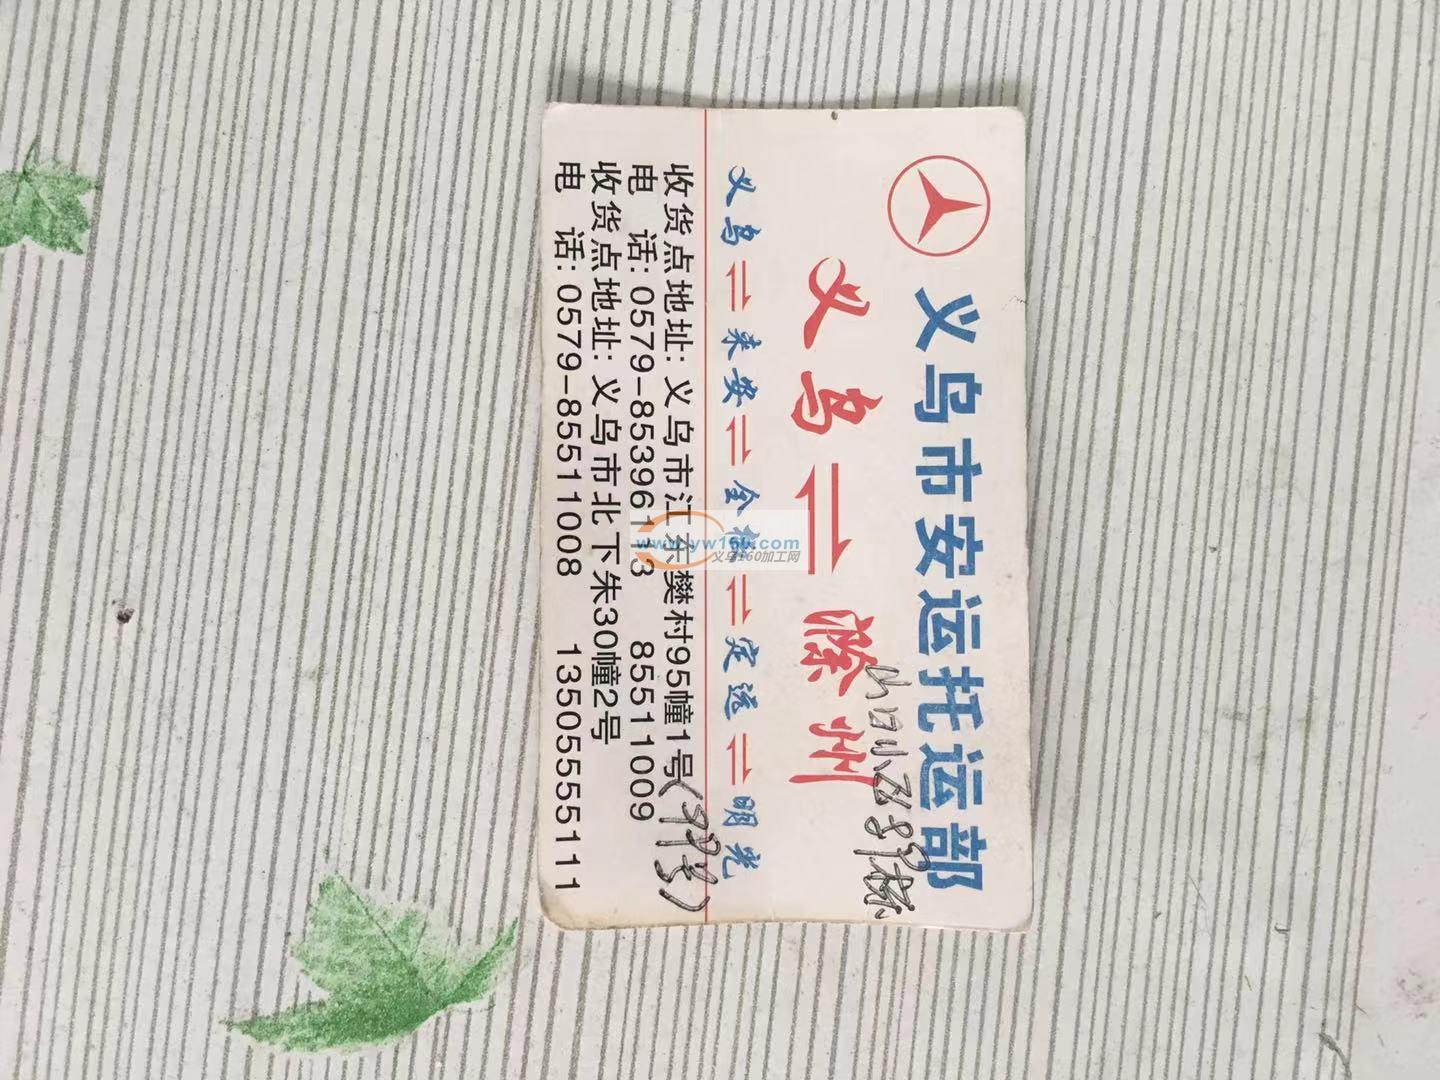 义乌市安运托运部
义乌⇌滁州
山口小区89栋
义乌⇌来安⇌全椒⇌定运⇌明光
收货点地址: 义乌市江东樊村95幢1号(99号)
电 话: 0579-85396113 85511009
收货点地址: 义乌市北下朱30幢2号
电 话: 0579-85511008 13505555111
www.yw160.com
义乌160加工网